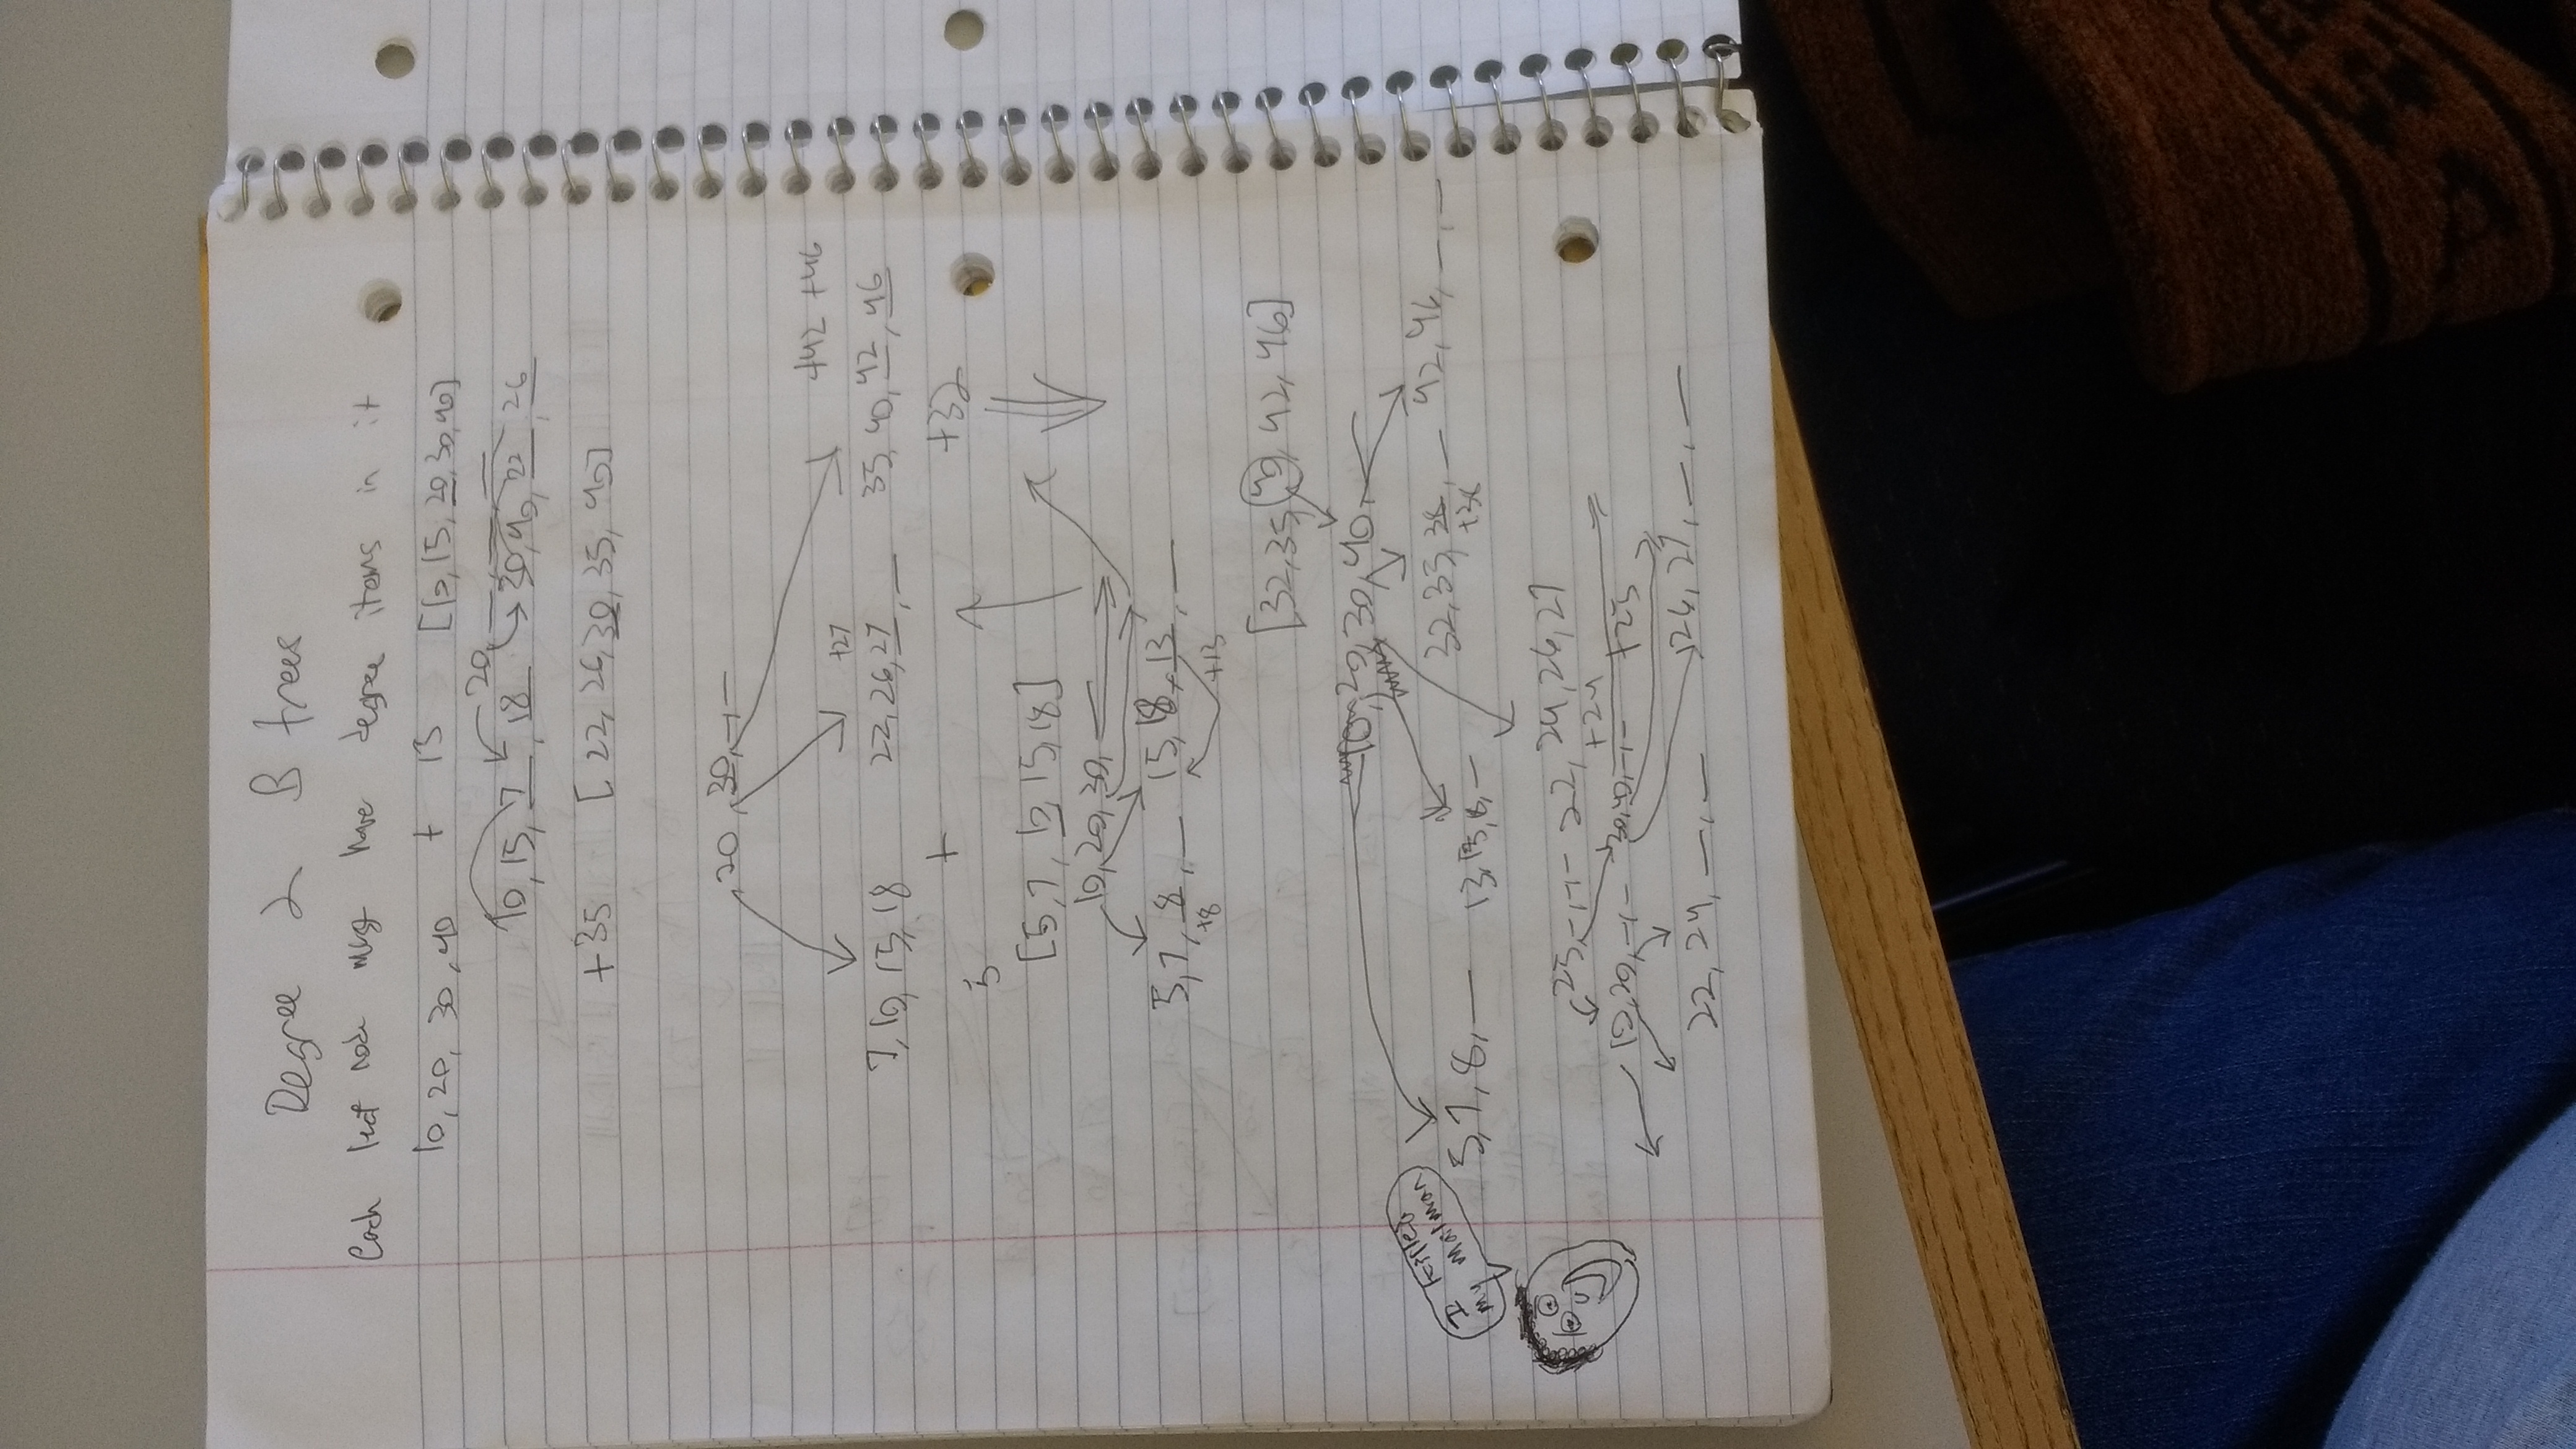 Degree 2 B trees
Each leaf node must have degree items in it
10, 20, 30, 40 + 15 [10, 15, 20, 30, 40]
20
10, 15, 7, 18 30, 40, 22, 26
+35 [22, 26, 30, 35, 40]
, 20, 30, – –
+27 +42 +46
7, 10, 15, 18 22, 26, 27, – 35, 40, 42, 46
+ +32
5
[5, 7, 10, 15, 18]
10, 20, 30, –
5, 7, 8, – 15, 18, 13, –
+8 +13
[32, 35, 40, 42, 46]
10, 20, 30, 40
5, 7, 8, – 13, 15, 18, – 32, 35, 38, – 42, 46, –, –
+38
I
my
22, 24, 26, 27
23, – – –
+24 +23
, 20, – – 30, 40, – –
22, 24, –, – 26, 27, –, –